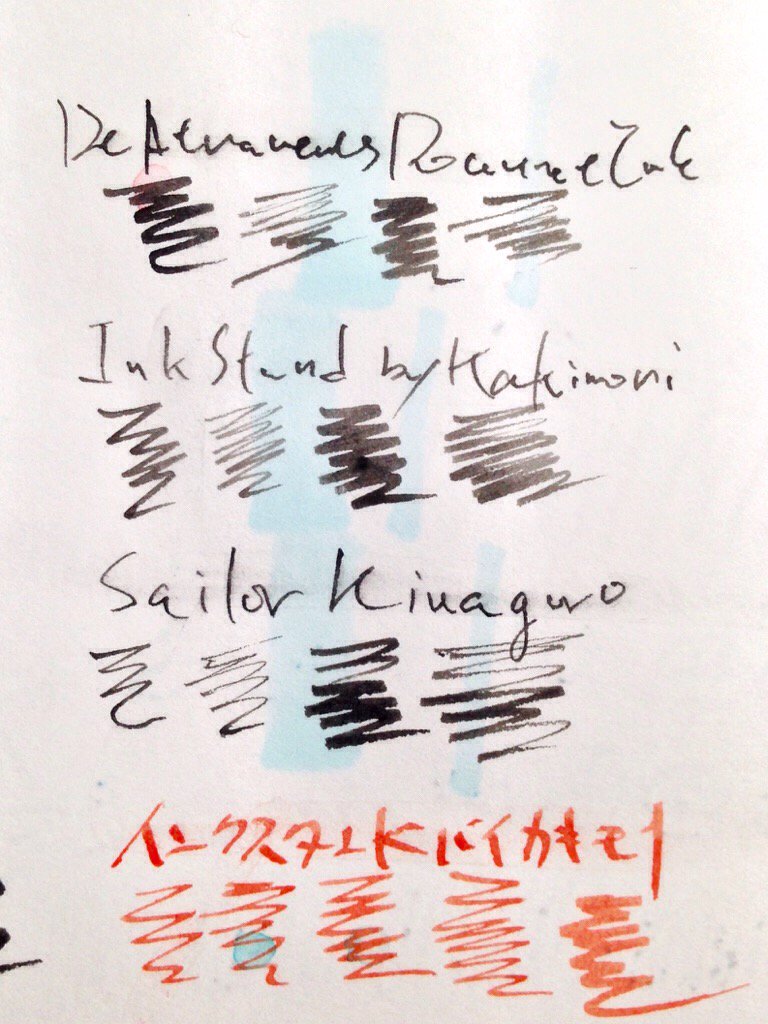 De Atramentis Document Ink
Ink Stand by Kakimori
Sailor Kiwaguro
インクスタンドバイカキモリ